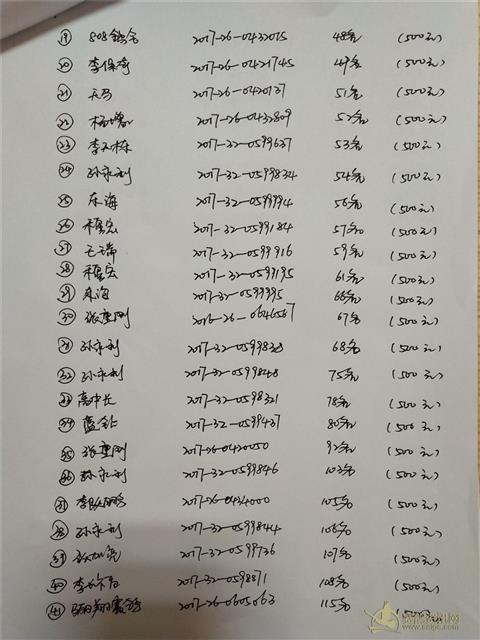 ⑲ 508鸽舍 2017-26-0432015 48名 (500元)
⑳ 李保奇 2017-26-0421745 49名 (500元)
㉑ 天马 2017-26-0420127 51名 (500元)
㉒ 2017-26-0432809 52名 (500元)
㉓ 2017-32-0599627 53名 (500元)
㉔ 孙永利 2017-32-0599834 54名 (500元)
㉕ 东海 2017-32-0599994 56名 (500元)
㉖ 2017-32-0599184 57名 (500元)
㉗ 王瑞 2017-32-0599916 59名 (500元)
㉘ 2017-32-0599195 61名 (500元)
㉙ 东海 2017-32-0599995 66名 (500元)
㉚ 张重刚 2016-26-0646567 67名 (500元)
孙永利 2017-32-0599838 68名 (500元)
㉜ 孙永利 2017-32-0599848 75名 (500元)
㉝ 高中长 2017-32-0598321 78名 (500元)
㉞ 2017-32-0599437 80名 (500元)
㉟ 张重刚 2017-26-0420050 92名 (500元)
㊱ 孙永利 2017-32-0599846 103名 (500元)
㊲ 2017-26-0434000 105名 (500元)
㊳ 孙永利 2017-32-0599844 106名 (500元)
㊴ 2017-32-0599736 107名 (500元)
㊵ 2017-32-0598871 108名 (500元)
㊶ 2017-26-0605063 115名 (500元)